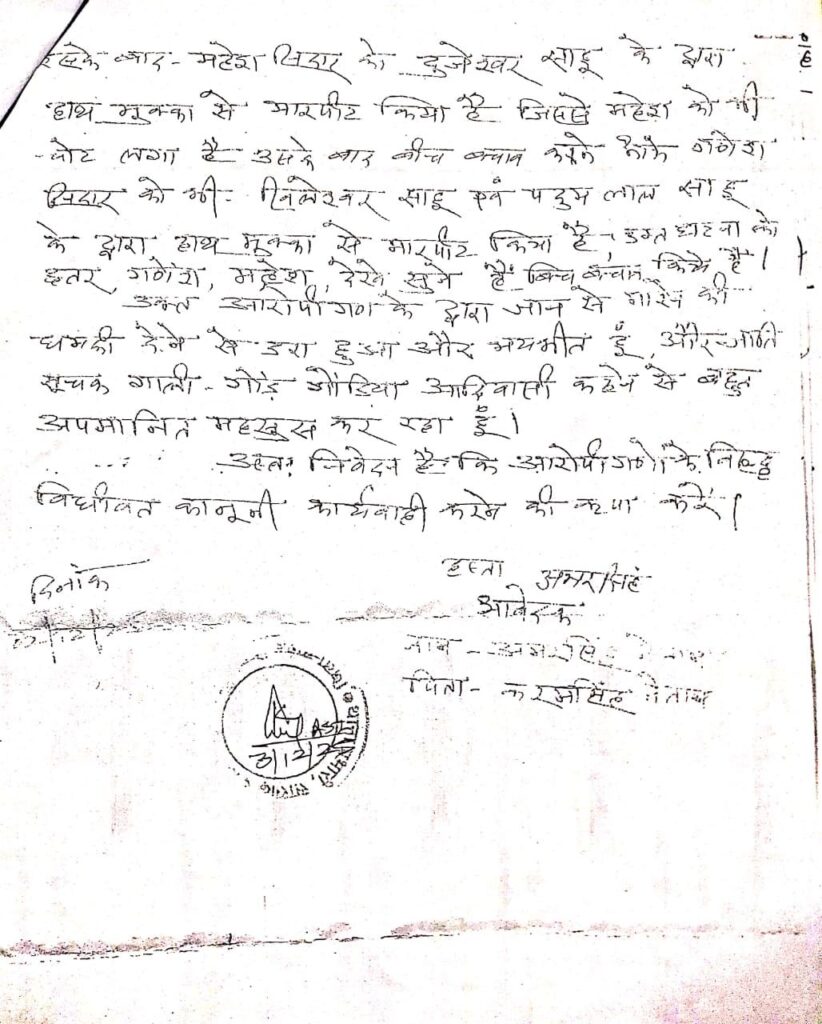 इसके बाद - महेश सिदार को दुजेश्वर साहू के द्वारा
हाथ मुक्का से मारपीट किया है जिससे महेश को भी
चोट लगा है उसके बाद बीच बचाव करने गणेश
सिदार को भी - साहू एवं पदुम लाल साहू
के द्वारा हाथ मुक्का से मारपीट किया है, उक्त घटना को
इतर, गणेश, महेश, देखे सुने हैं बिच बचाव किये हैं।
उक्त आरोपीगण के द्वारा जान से मारने की
धमकी देने से डरा हुआ और भयभीत हूँ, और जाति
सूचक गाली - गोंड़ गोंडिया आदिवासी कहने से बहुत
अपमानित महसुस कर रहा हूँ।
अतः निवेदन है कि आरोपीगणों के विरुद्ध
विधीवत कानूनी कार्यवाही करने की कृपा करें।
दिनांक
हस्ता अमरसिंह
आवेदक
नाम - अमरसिंह
पिता - करमसिंह नेताम
ASI
3/12/25